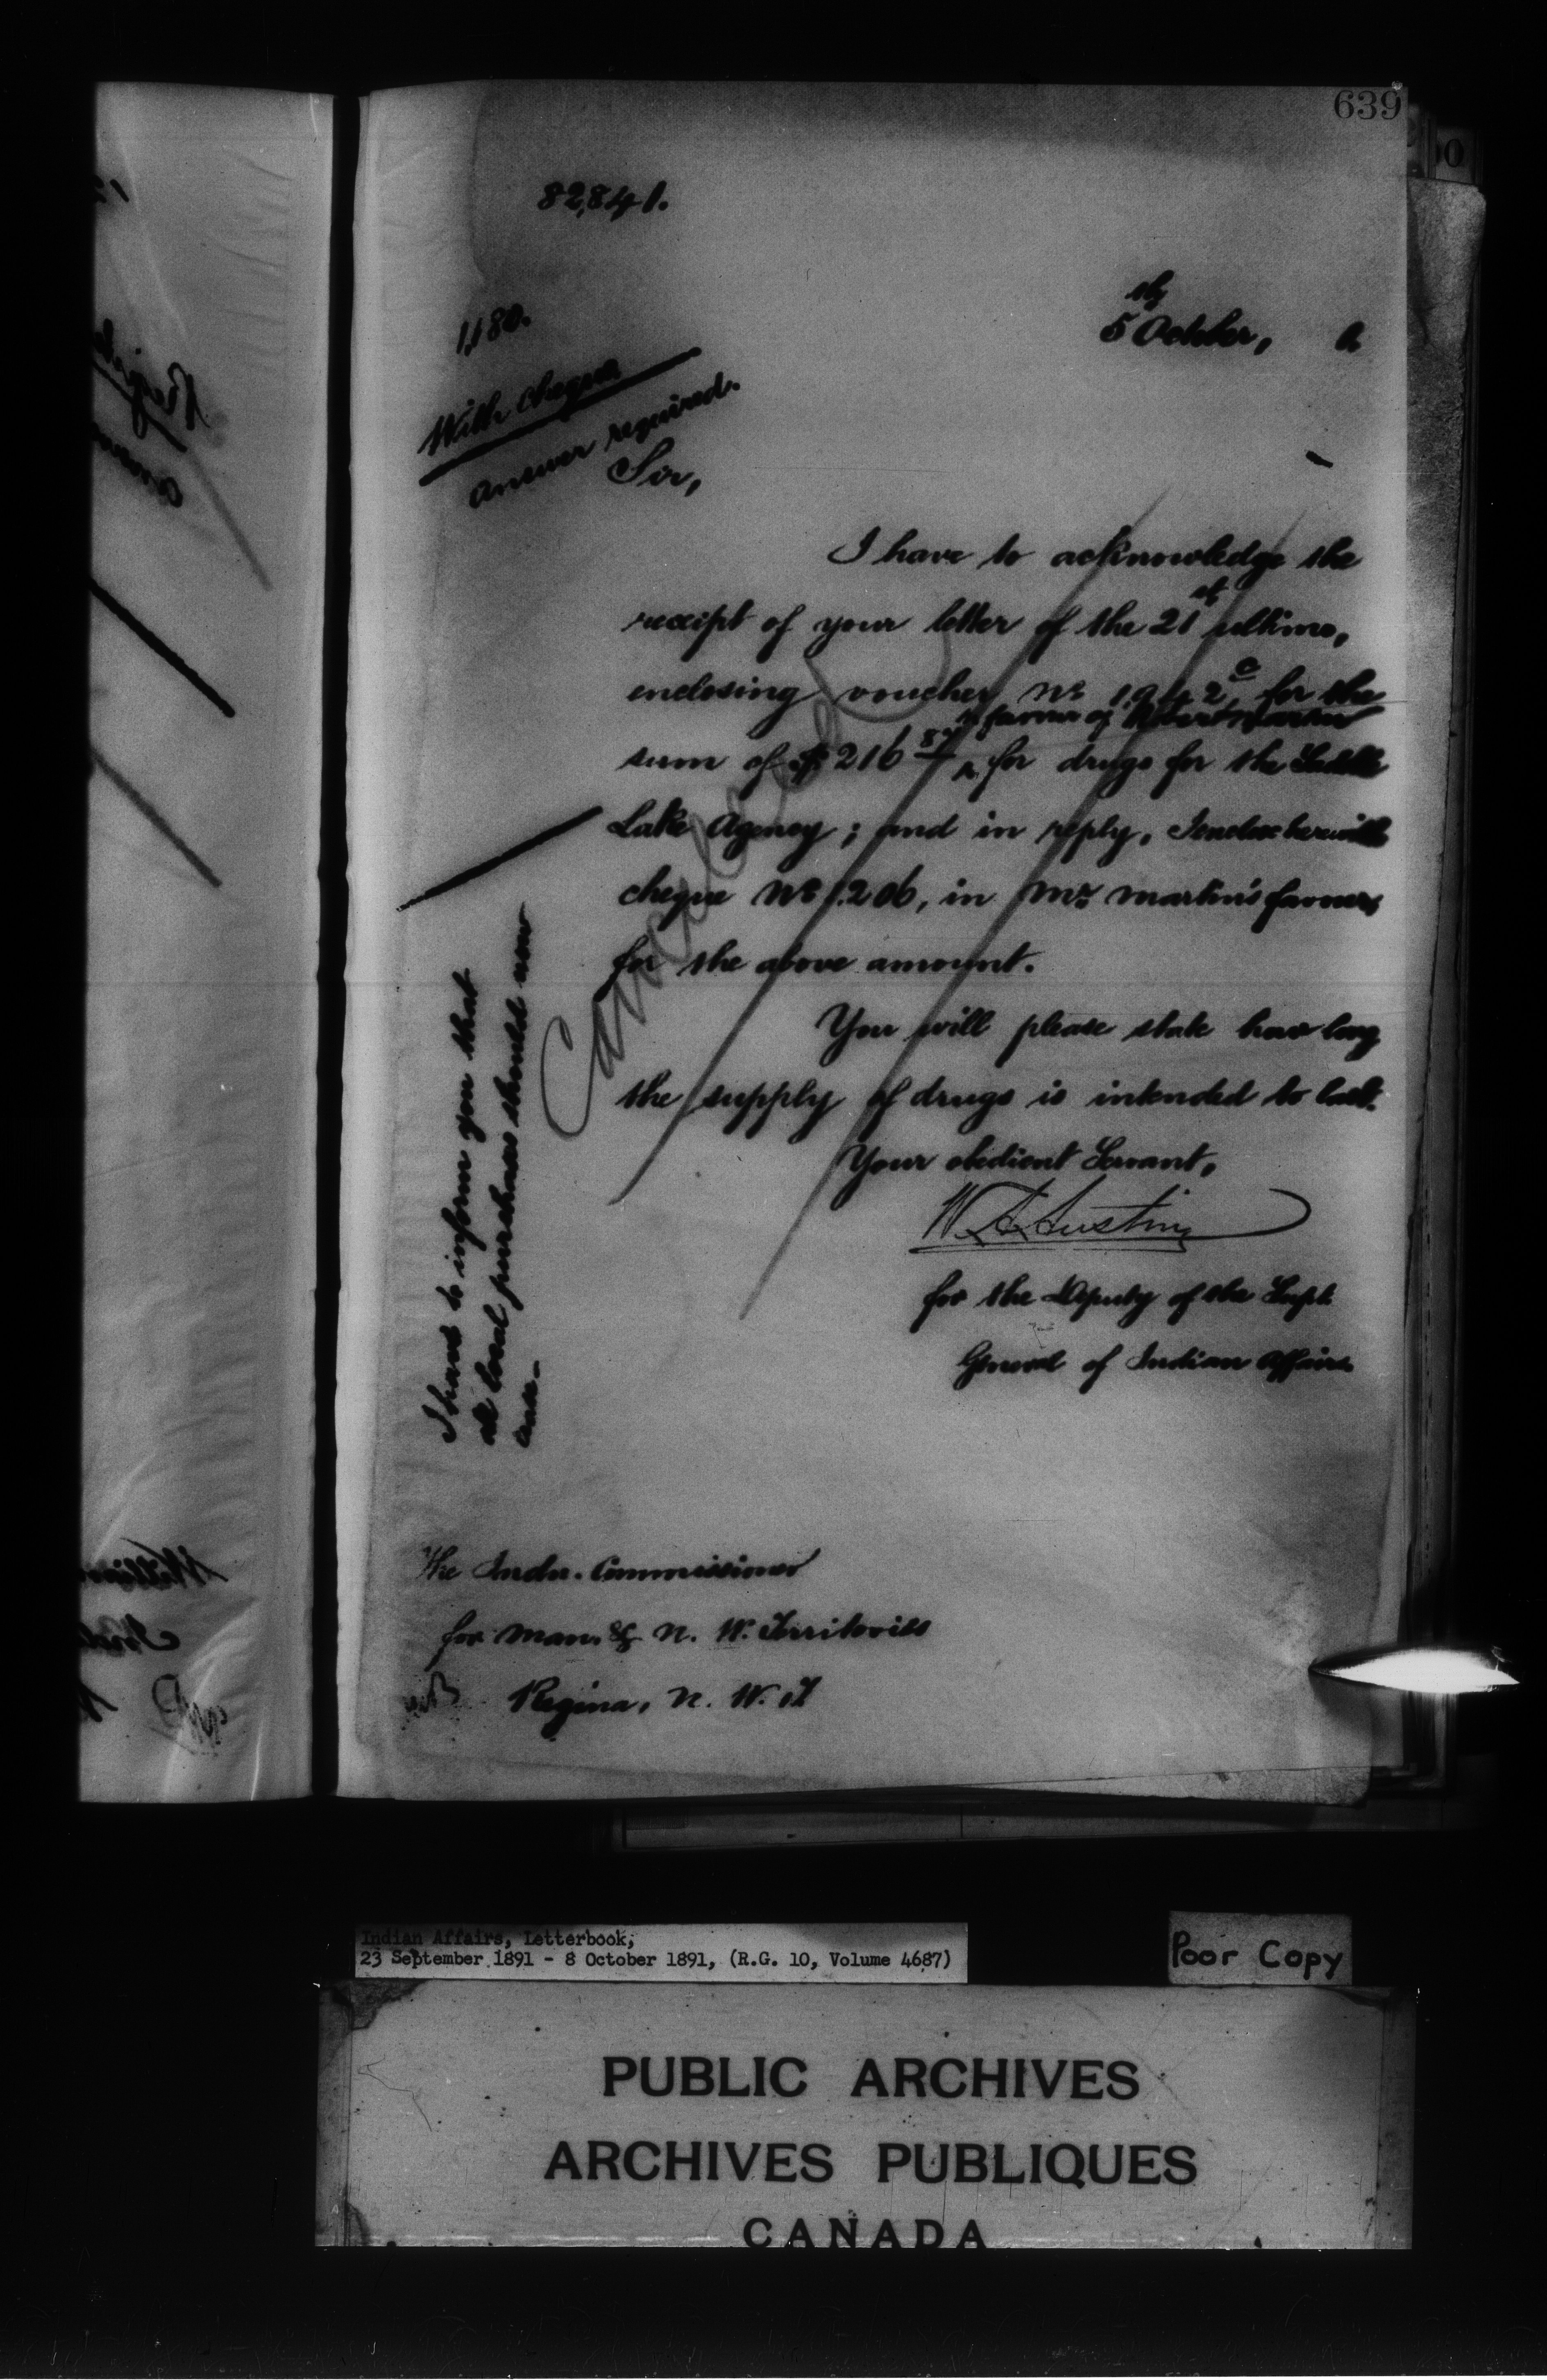 639
82,841.
1,180.
5th October, 1.
With cheque
Answer required.
Sir,
I have to acknowledge the
receipt of your letter of the 21st ultimo,
enclosing voucher No for the
in favour of Robert Martin
sum of $216 for drugs for the Saddle
Lake Agency; and in reply, I enclose herewith
cheque No 1.206, in Mr Martin's favour,
for the above amount.
You will please state how long
the supply of drugs is intended to last.
Your obedient Servant,
W. A. Austin
for the Deputy of the Supt.
General of Indian Affairs.
Cancelled
I have to inform you that
all local purchases should now
cease.
The Indn. Commissioner
for Man. & N. W. Territories
Regina, N. W. T.
Indian Affairs, Letterbook,
23 September 1891 - 8 October 1891, (R.G. 10, Volume 4687)
Poor Copy
PUBLIC ARCHIVES
ARCHIVES PUBLIQUES
CANADA